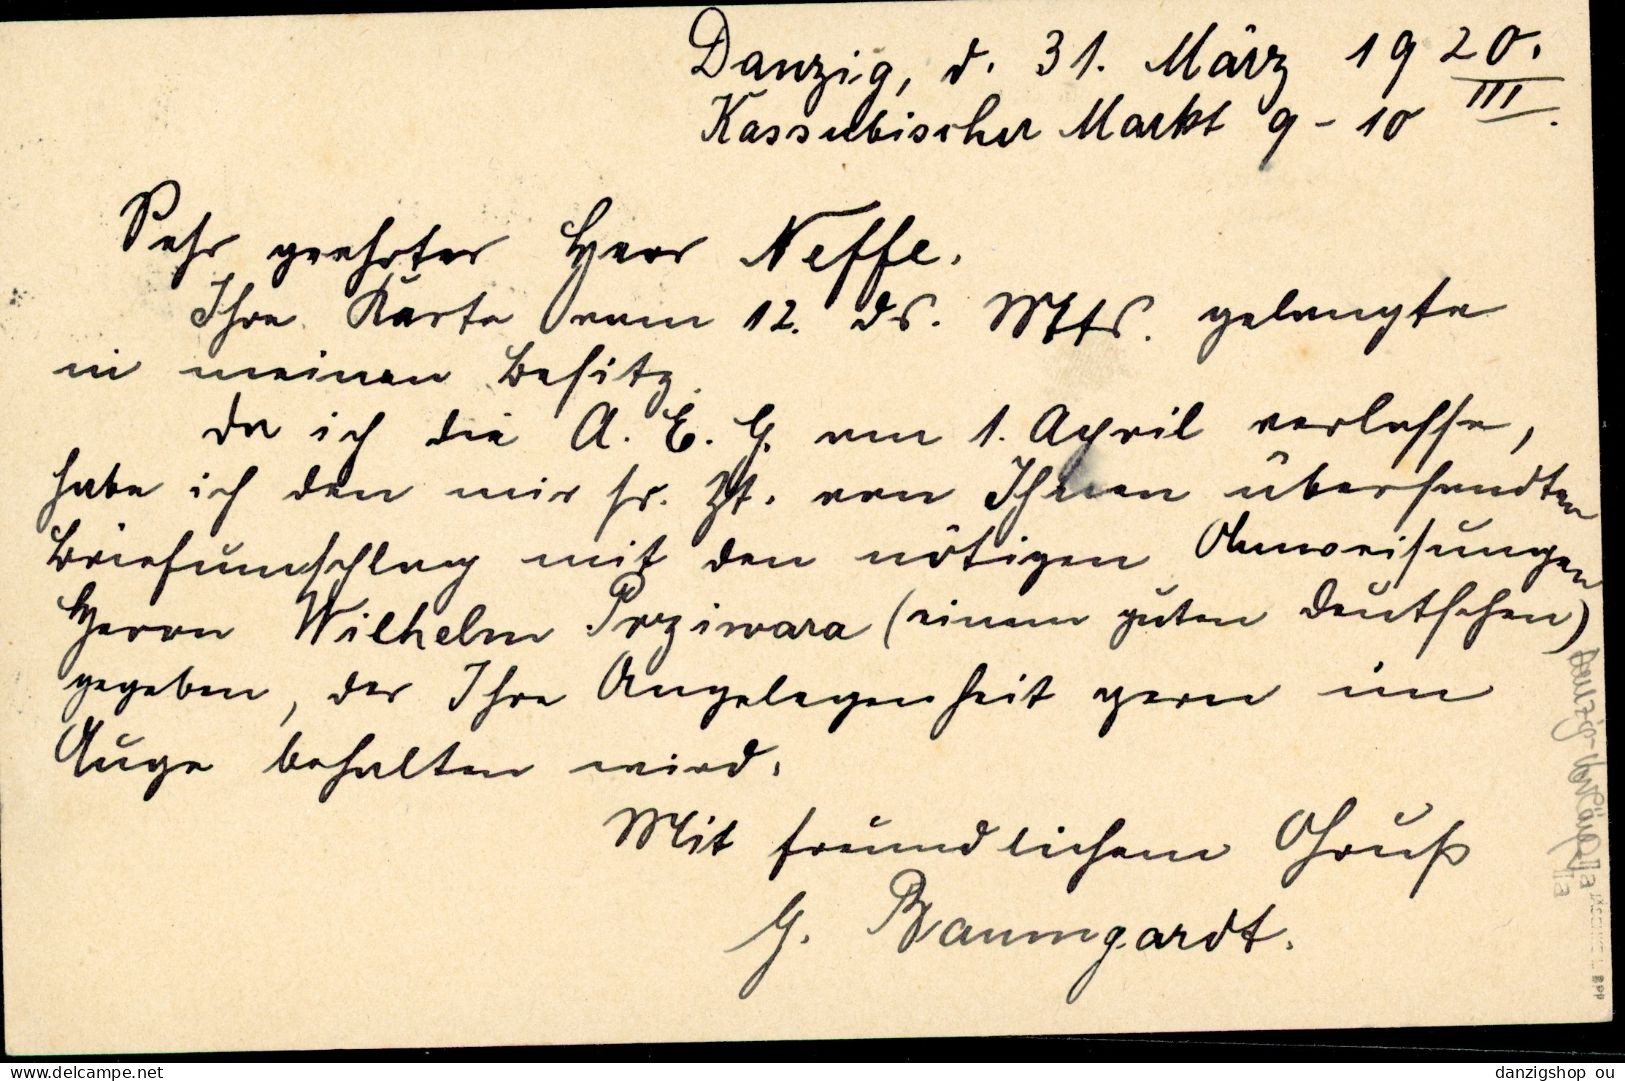 Danzig, d. 31. März 1920.
Kassubischer Markt 9-10 III.
Sehr geehrter Herr Neffe.
Ihre Karte vom 12. ds. Mts. gelangte
in meinen Besitz.
Da ich die A. E. G. am 1. April verlasse,
habe ich den mir sr. Zt. von Ihnen übersandten
Briefumschlag mit den nötigen Anweisungen
Herrn Wilhelm Prziwara (einem guten Deutschen)
gegeben, der Ihre Angelegenheit gern im
Auge behalten wird.
Mit freundlichem Gruß
G. Baumgardt.
BPP
delcampe.net
danzigshop ou